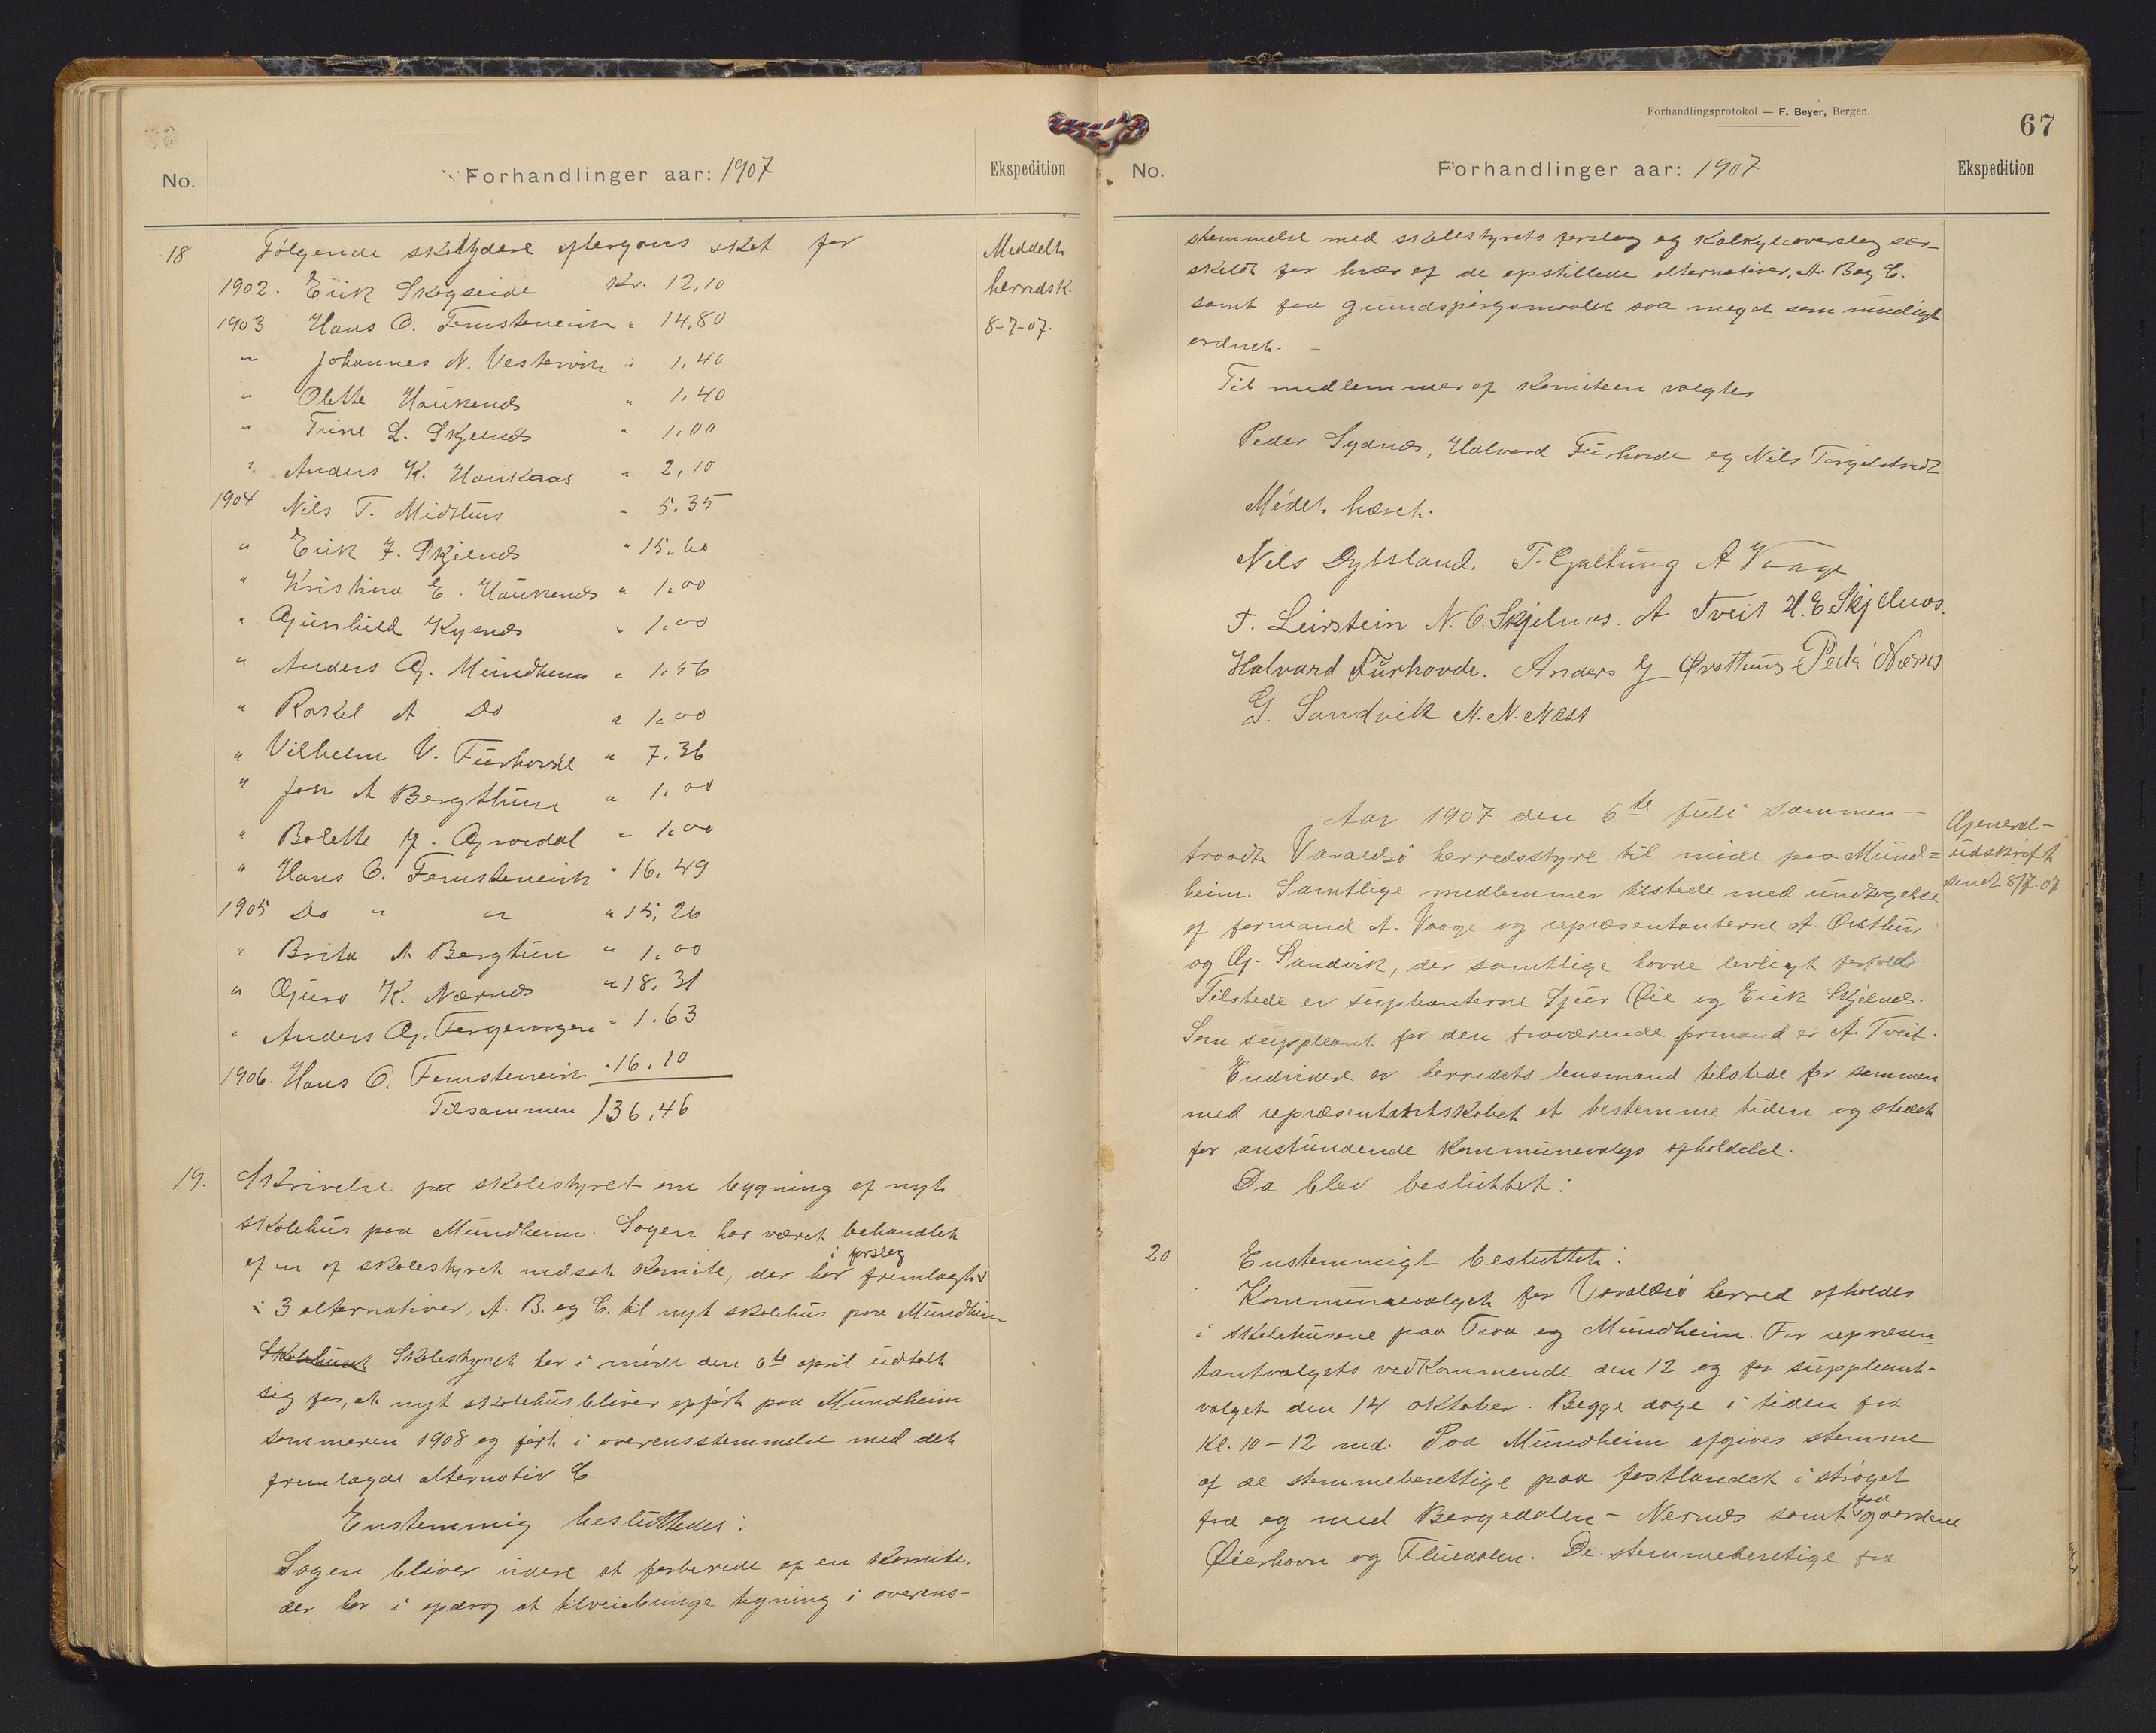 No.
Forhandlinger aar: 1907
Ekspedition
18 Følgende skatydere eftergaves skat for
Meddelt
herredsk.
8-7-07.
1902. Erik Skogseide Kr. 12,10
1903 Hans O. Femstenevik " 14,80
" Johannes N. Vestervik " 1,40
" Olette Haukenæs " 1.40
" Trine L. Skjelnæs " 1.00
" Anders K. Haukaas " 2,10
1904 Nils T. Midthus " 5.35
" Erik J. Skjelnæs " 15.60
" Kristina E. Haukenæs " 1.00
" Gunhild Kysnæs " 1.00
" Anders G. Mundheim " 1.56
" Raskel A Do " 1.00
" Vilhelm V. Furhovde " 7.36
" Jon A Bergthun " 1.00
" Bolette J. Grovdal " 1.00
" Hans O. Femstenevik " 16.49
1905 Do " " " 15,26
" Brita A Bergtun " 1,00
" Guro K. Nærnæs " 18.31
" Anders G. Fergevagen " 1.63
1906. Hans O. Femstenevik " 16.10
Tilsammen 136,46
19. Skrivelse fra skolestyret om bygning af nyt
skolehus paa Mundheim. Sagen har været behandlet
i forslag
af en af skolestyret nedsat komite, der har fremlagt
i 3 alternativer, A. B. og C. til nyt skolehus paa Mundheim
Skolehuset Skolestyret har i møde den 6te april udtalt
sig for, at nyt skolehus bliver opført paa Mundheim
sommeren 1908 og ført i overensstemmelse med det
fremlagde alternativ C.
Enstemmig besluttedes:
Sagen bliver videre at forberede af en komite,
der har i opdrag at tilveiebringe tegning i overens-
Forhandlingsprotokol — F. Beyer, Bergen.
67
No.
Forhandlinger aar: 1907
Ekspedition
stemmelse med skolestyrets forslag og kalkyleoverslag sær-
skildt for hver af de opstillede alternativer, A. B og C.
samt faa grundspørgsmaalet saa meget som muligt
ordnet. –
Til medlemmer af komiteen valgtes
Peder Sydnæs, Halvard Furhovde og Nils Torgilstvedt
Mødet hævet.
Nils Dybsland. T. Galtung A Vaage
T. Leirstein N. O. Skjelnæs. A Tveit H. E Skjelnæs.
Halvard Furhovde. Anders J Ørsthus Peder Nærnes
G. Sandvik N. N. Næss
Aar 1907 den 6te juli sammen-
traadte Varaldsø herredsstyre til møde paa Mund=
heim. Samtlige medlemmer tilstede med undtagelse
af formand A. Vaage og repræsentanterne A. Ørsthus,
og G. Sandvik, der samtlige havde lovligt forfald
Tilstede er supleanterne Sjur Øie og Erik Skjelnes.
Som suppleant for den fraværende formand er A. Tveit.
Endvidere er herredets lensmand tilstede for sammen
med repræsentantskabet at bestemme tiden og stedet
for anstundende kommunevalgs afholdelse.
Da blev besluttet:
General-
udskrift
sendt 8/7-07
20 Enstemmigt besluttet:
Kommunevalget for Varaldsø herred afholdes
i skolehusene paa Traa og Mundheim. For repræsen
tantvalgets vedkommende den 12 og for suppleant-
valget den 14 oktober. Begge dage i tiden fra
Kl. 10 – 12 md. Paa Mundheim afgives stemme
af de stemmeberettige paa fastlandet i strøget
fra og med Bergedalen – Nernæs samt fra gaardene
Øierhavn og Fluedalen. De stemmeberetige fra